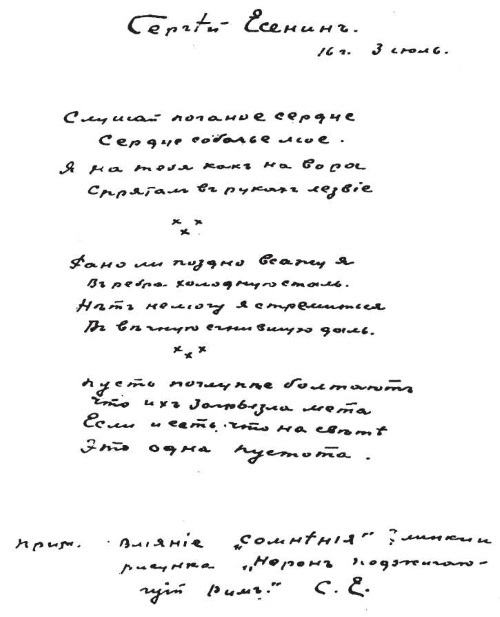 Сергѣй Есенинъ.
16 г. 3 июль.
Слушай поганое сердце
Сердце собачье мое.
Я на тебя какъ на вора
Спряталъ въ рукахъ лезвіе
Рано ли поздно всажу я
Въ ребра холодную сталь.
Нѣтъ не могу я стремиться
Въ вѣчную сгнившую даль.
Пусть поглупѣе болтаютъ
Что ихъ загрызла мета
Если и есть что на свѣтѣ
Это одна пустота.
Прим. Вліяніе „Сомнѣнія" Глинки и
рисунка „Неронъ поджигаю-
щій Римъ." С. Е.